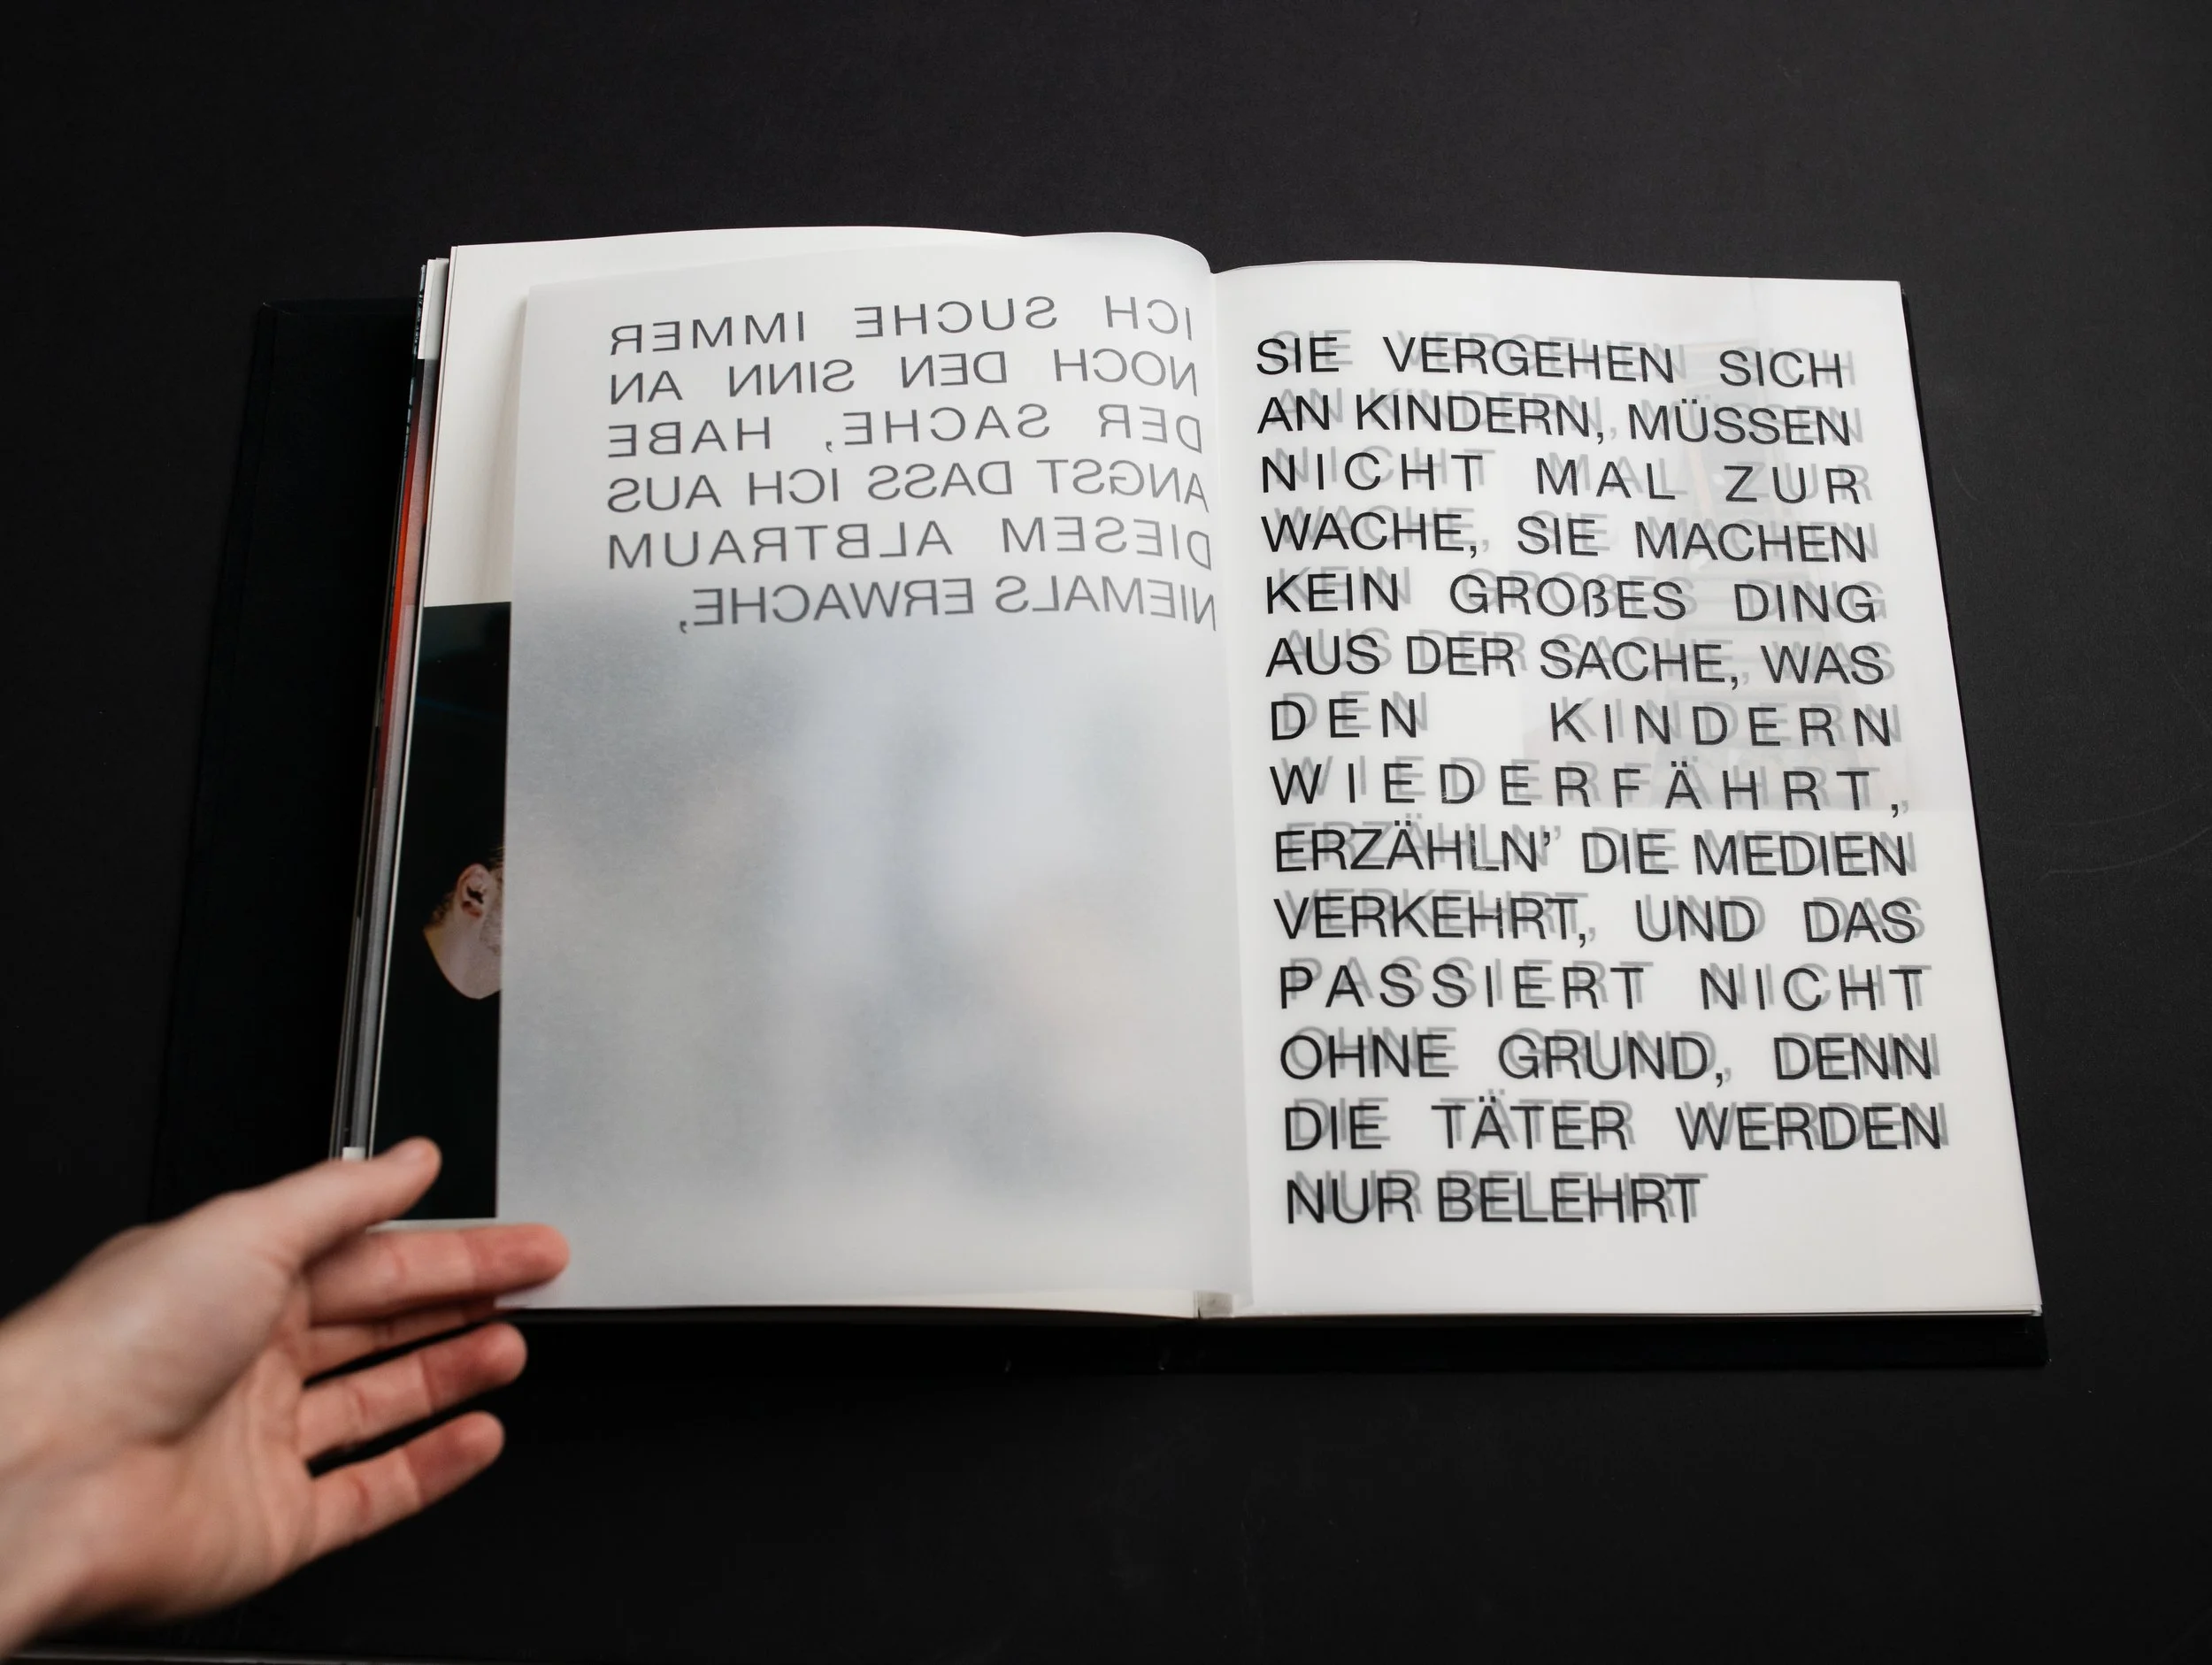 ICH SUCHE IMMER
NOCH DEN SINN AN
DER SACHE, HABE
ANGST DASS ICH AUS
DIESEM ALBTRAUM
NIEMALS ERWACHE,
SIE VERGEHEN SICH
AN KINDERN, MÜSSEN
NICHT MAL ZUR
WACHE, SIE MACHEN
KEIN GROßES DING
AUS DER SACHE, WAS
DEN KINDERN
WIEDERFÄHRT,
ERZÄHLN’ DIE MEDIEN
VERKEHRT, UND DAS
PASSIERT NICHT
OHNE GRUND, DENN
DIE TÄTER WERDEN
NUR BELEHRT